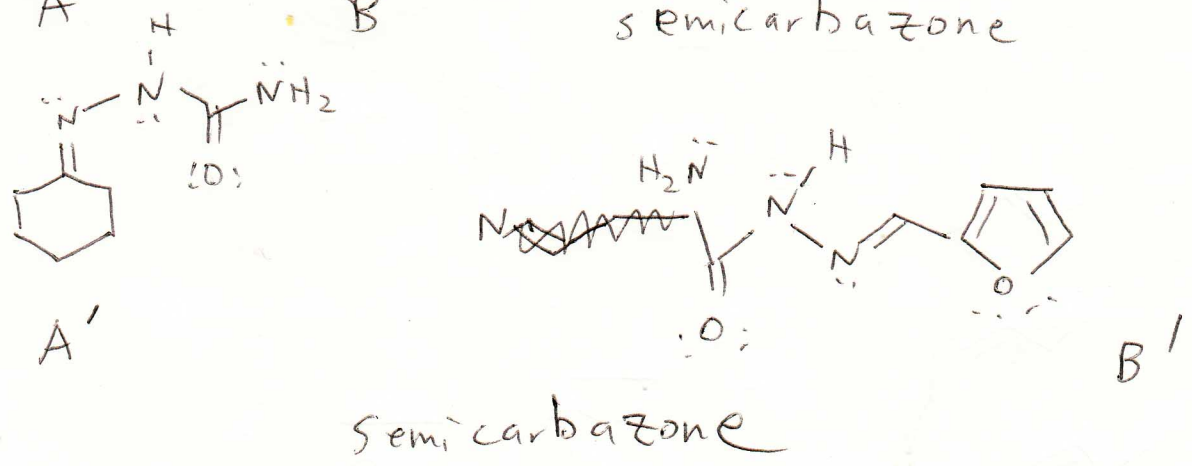 A B semicarbazone
H
N N NH2
O
H
H2N N
N
N
O
O
A'
B'
semicarbazone